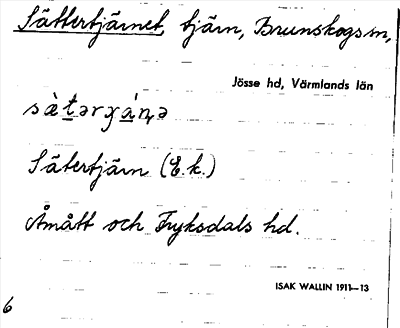 Sättertjärnet, tjärn, Brunskogs sn,
Jösse hd, Värmlands län
Sätertjärn (E.k.)
Åmått och Fryksdals hd.
ISAK WALLIN 1911—13
6